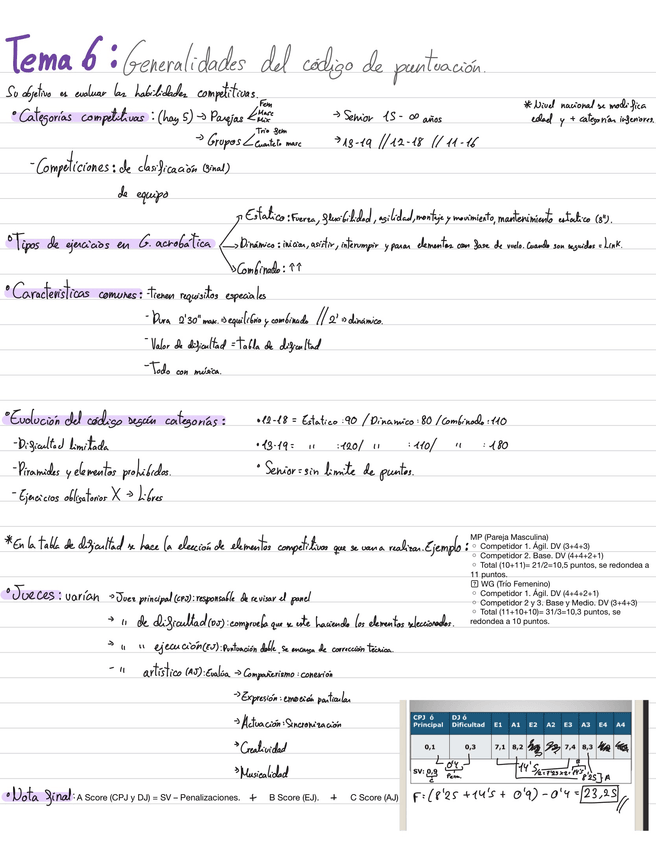 Tema 6: Generalidades del código de puntuación.
Su objetivo es evaluar las habilidades competitivas.
• Categorías competitivas: (hay 5) → Parejas Fem Masc Mix → Senior 15 - ∞ años
* Nivel nacional se modifica edad y + categorías inferiores.
→ Grupos Trío fem Cuarteto masc → 13-19 // 12-18 // 11-16
- Competiciones: de clasificación (final)
de equipo
• Tipos de ejercicios en G. acrobática
→ Estático: Fuerza, flexibilidad, agilidad, montaje y movimiento, mantenimiento estático (3").
→ Dinámico: iniciar, asistir, interrumpir y parar elementos con fase de vuelo. Cuando son seguidos = Link.
→ Combinado: ↑↑
• Características comunes: - tienen requisitos especiales
- Dura 2'30" max. ⇒ equilibrio y combinado // 2' ⇒ dinámico.
- Valor de dificultad = tabla de dificultad
- Todo con música.
• Evolución del código según categorías: • 12-18 = Estático: 90 / Dinámico: 80 / Combinado: 110
- Dificultad limitada • 13-19 = " : 120 / " : 110 / " : 180
- Piramides y elementos prohibidos. • Senior = sin límite de puntos.
- Ejercicios obligatorios X → Libres
* En la tabla de dificultad se hace la elección de elementos competitivos que se van a realizar. Ejemplo:
MP (Pareja Masculina)
○ Competidor 1. Ágil. DV (3+4+3)
○ Competidor 2. Base. DV (4+4+2+1)
○ Total (10+11)= 21/2=10,5 puntos, se redondea a
11 puntos.
? WG (Trío Femenino)
○ Competidor 1. Ágil. DV (4+4+2+1)
○ Competidor 2 y 3. Base y Medio. DV (3+4+3)
○ Total (11+10+10)= 31/3=10,3 puntos, se
redondea a 10 puntos.
• Jueces: varían → Juez principal (CPJ): responsable de revisar el panel
→ " de dificultad (DJ): comprueba que se esté haciendo los elementos seleccionados.
→ " " ejecución (EJ): Puntuación doble, se encarga de corrección técnica.
- " artístico (AJ): Evalúa → Compañerismo: conexión
→ Expresión: emoción particular
→ Actuación: Sincronización
→ Creatividad
→ Musicalidad
CPJ ó Principal DJ ó Dificultad E1 A1 E2 A2 E3 A3 E4 A4
0,1 0,3 7,1 8,2 7,4 8,3
SV: 0,9 0'4 Pena. 14'5 8'25 } A
• Nota final: A Score (CPJ y DJ) = SV – Penalizaciones. + B Score (EJ). + C Score (AJ)
F = (8'25 + 14'5 + 0'9) - 0'4 = 23,25